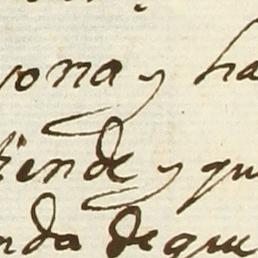 yona y ha
tiende y qu
nda de que